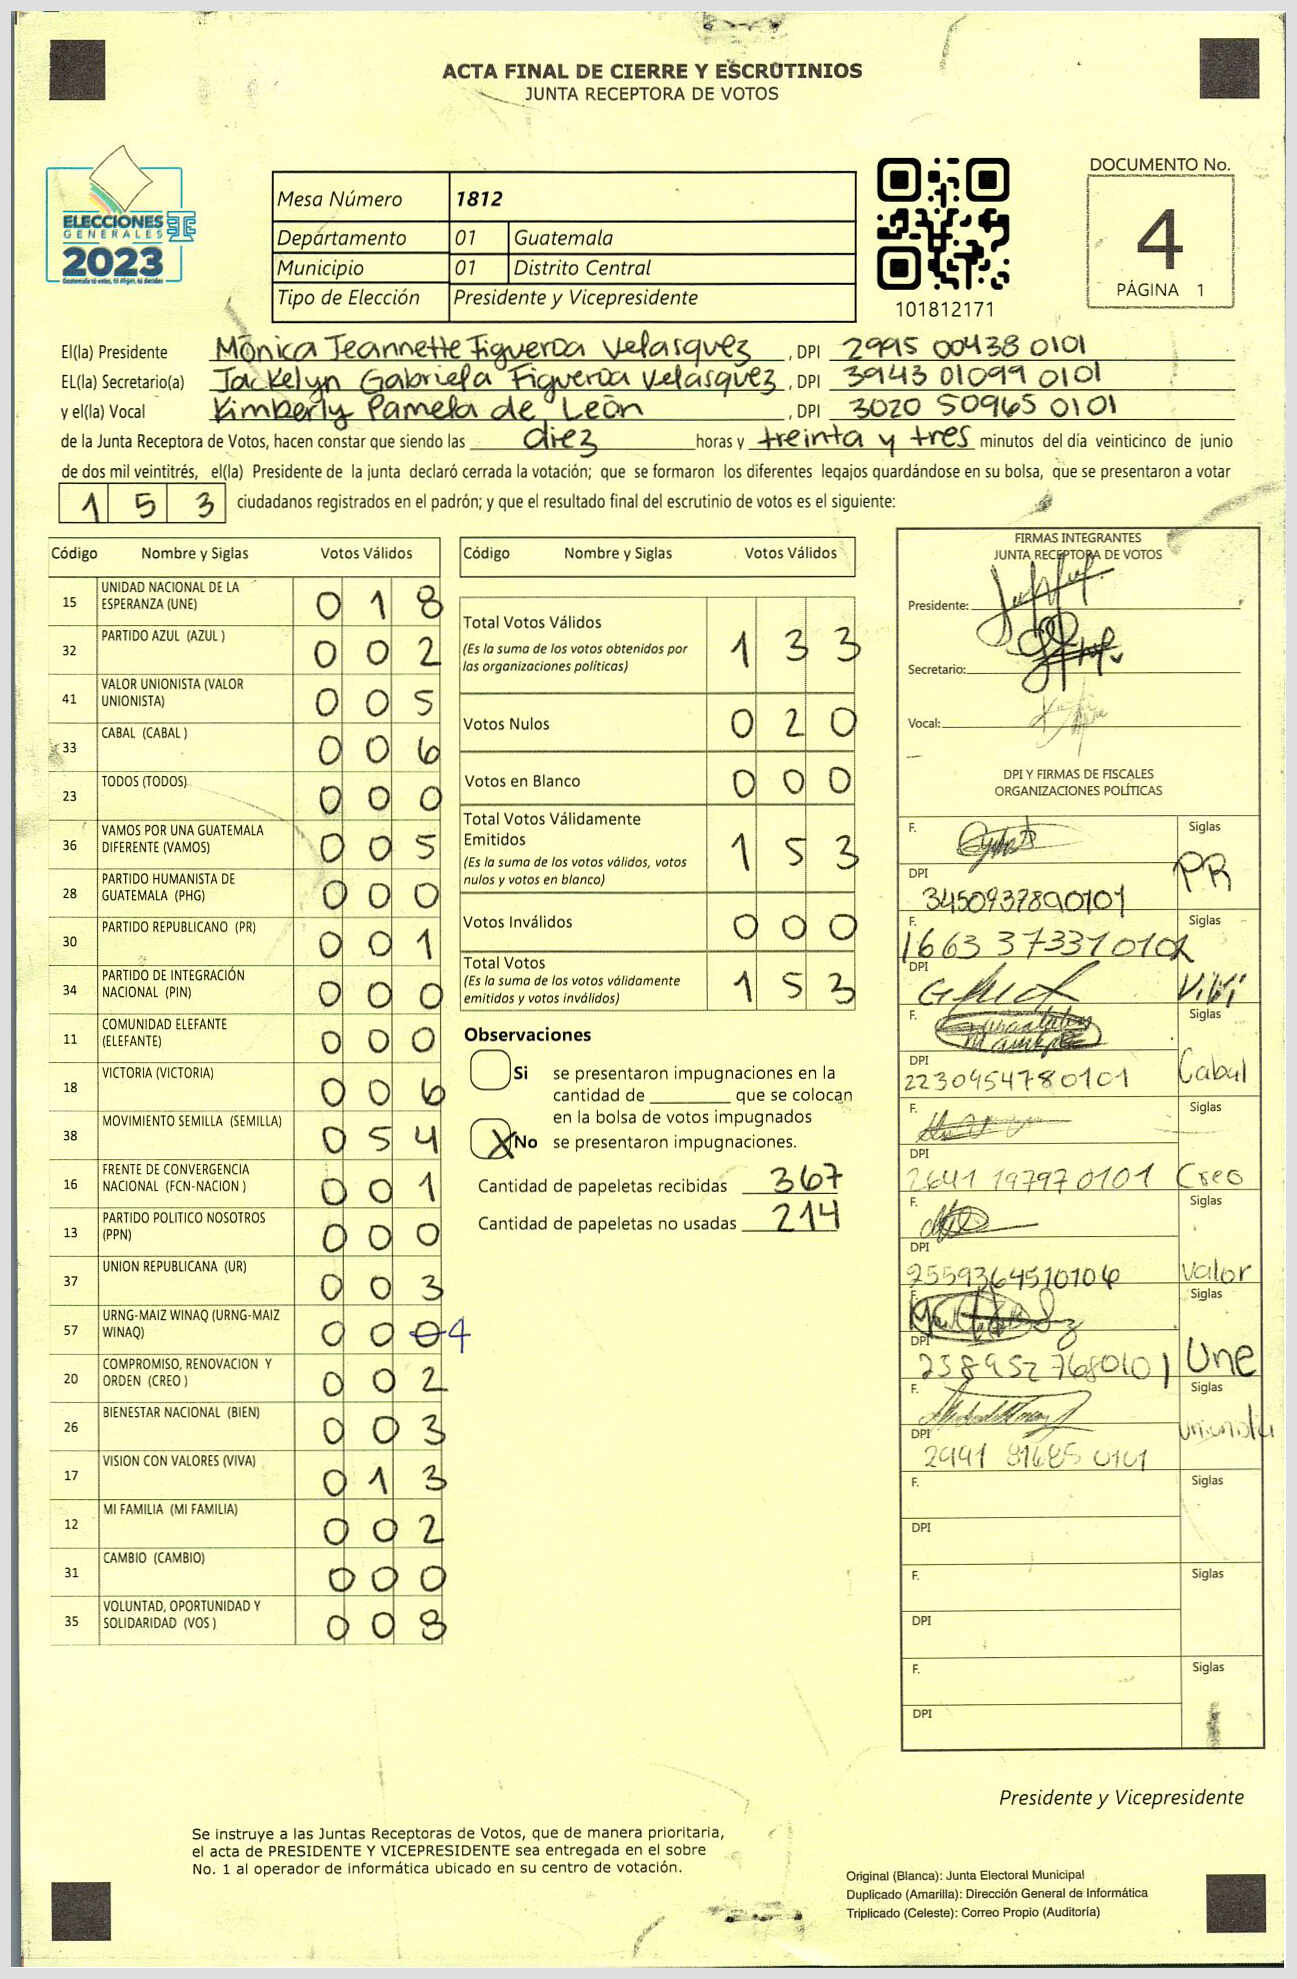 ACTA FINAL DE CIERRE Y ESCRUTINIOS
JUNTA RECEPTORA DE VOTOS
ELECCIONES
GENERALES
2023
Guatemala tú votas, tú eliges, tú decides
Mesa Número 1812
Departamento 01 Guatemala
Municipio 01 Distrito Central
Tipo de Elección Presidente y Vicepresidente
101812171
DOCUMENTO No.
4
PÁGINA 1
El(la) Presidente Mónica Jeannette Figueroa Velasquez, DPI 2995 00438 0101
EL(la) Secretario(a) Jackelyn Gabriela Figueroa Velasquez, DPI 3943 01099 0101
y el(la) Vocal Kimberly Pamela de León, DPI 3020 50965 0101
de la Junta Receptora de Votos, hacen constar que siendo las diez horas y treinta y tres minutos del día veinticinco de junio
de dos mil veintitrés, el(la) Presidente de la junta declaró cerrada la votación; que se formaron los diferentes legajos quardándose en su bolsa, que se presentaron a votar
153 ciudadanos registrados en el padrón; y que el resultado final del escrutinio de votos es el siguiente:
Código Nombre y Siglas Votos Válidos
15 UNIDAD NACIONAL DE LA ESPERANZA (UNE) 018
32 PARTIDO AZUL (AZUL ) 002
41 VALOR UNIONISTA (VALOR UNIONISTA) 005
33 CABAL (CABAL ) 006
23 TODOS (TODOS) 000
36 VAMOS POR UNA GUATEMALA DIFERENTE (VAMOS) 005
28 PARTIDO HUMANISTA DE GUATEMALA (PHG) 000
30 PARTIDO REPUBLICANO (PR) 001
34 PARTIDO DE INTEGRACIÓN NACIONAL (PIN) 000
11 COMUNIDAD ELEFANTE (ELEFANTE) 000
18 VICTORIA (VICTORIA) 006
38 MOVIMIENTO SEMILLA (SEMILLA) 054
16 FRENTE DE CONVERGENCIA NACIONAL (FCN-NACION ) 001
13 PARTIDO POLITICO NOSOTROS (PPN) 000
37 UNION REPUBLICANA (UR) 003
57 URNG-MAIZ WINAQ (URNG-MAIZ WINAQ) 000 4
20 COMPROMISO, RENOVACION Y ORDEN (CREO ) 002
26 BIENESTAR NACIONAL (BIEN) 003
17 VISION CON VALORES (VIVA) 013
12 MI FAMILIA (MI FAMILIA) 002
31 CAMBIO (CAMBIO) 000
35 VOLUNTAD, OPORTUNIDAD Y SOLIDARIDAD (VOS ) 008
Código Nombre y Siglas Votos Válidos
Total Votos Válidos 133
(Es la suma de los votos obtenidos por
las organizaciones políticas)
Votos Nulos 020
Votos en Blanco 000
Total Votos Válidamente
Emitidos 153
(Es la suma de los votos válidos, votos
nulos y votos en blanco)
Votos Inválidos 000
Total Votos 153
(Es la suma de los votos válidamente
emitidos y votos inválidos)
Observaciones
Si se presentaron impugnaciones en la
cantidad de ________ que se colocan
en la bolsa de votos impugnados
X No se presentaron impugnaciones.
Cantidad de papeletas recibidas 367
Cantidad de papeletas no usadas 214
FIRMAS INTEGRANTES
JUNTA RECEPTORA DE VOTOS
Presidente:
Secretario:
Vocal:
DPI Y FIRMAS DE FISCALES
ORGANIZACIONES POLÍTICAS
F. Siglas
PR
DPI
F. Siglas
DPI
F. Siglas
Cabal
DPI
2230954780101
F. Siglas
DPI
2641 19797 0101 Creo
F. Siglas
DPI
2559364510106 Valor
F. Siglas
DPI
Une
F. Siglas
DPI
F. Siglas
DPI
F. Siglas
DPI
F. Siglas
DPI
Presidente y Vicepresidente
Se instruye a las Juntas Receptoras de Votos, que de manera prioritaria,
el acta de PRESIDENTE Y VICEPRESIDENTE sea entregada en el sobre
No. 1 al operador de informática ubicado en su centro de votación.
Original (Blanca): Junta Electoral Municipal
Duplicado (Amarilla): Dirección General de Informática
Triplicado (Celeste): Correo Propio (Auditoría)